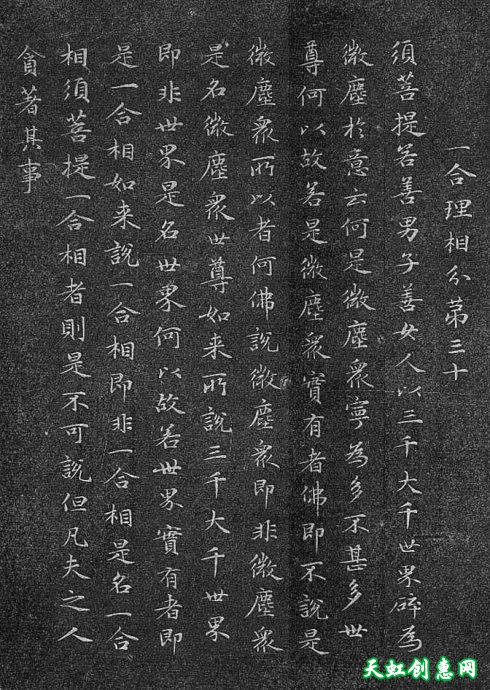 一合理相分第三十
須菩提若善男子善女人以三千大千世界碎為
微塵於意云何是微塵衆寧為多不甚多世
尊何以故若是微塵衆實有者佛即不說是
微塵衆所以者何佛說微塵衆即非微塵衆
是名微塵衆世尊如来所說三千大千世界
即非世界是名世界何以故若世界實有者即
是一合相如来說一合相即非一合相是名一合
相須菩提一合相者則是不可說但凡夫之人
貪著其事
天虹创惠网